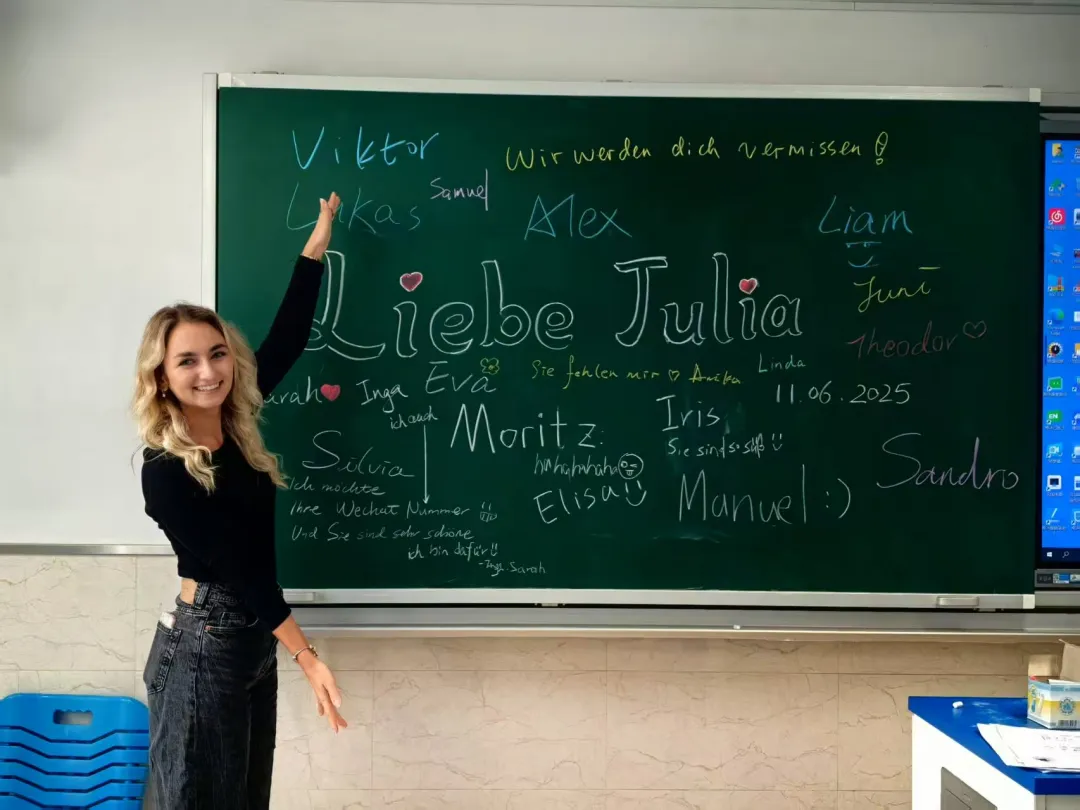 Viktor
Wir werden dich vermissen!
Samuel
Lukas
Alex
Liam
Liebe Julia
Juni
Theodor
Linda
Sie fehlen mir ♡ Anika
Eva
Inga
arah
11.06.2025
ich auch
Moritz
Iris
Sie sind so süß
hahahahaha
Silvia
Sandro
Elisa
Manuel :)
Ich möchte
Ihre Wechat Nummer
Und Sie sind sehr schöne
ich bin dafür
Sarah
EN